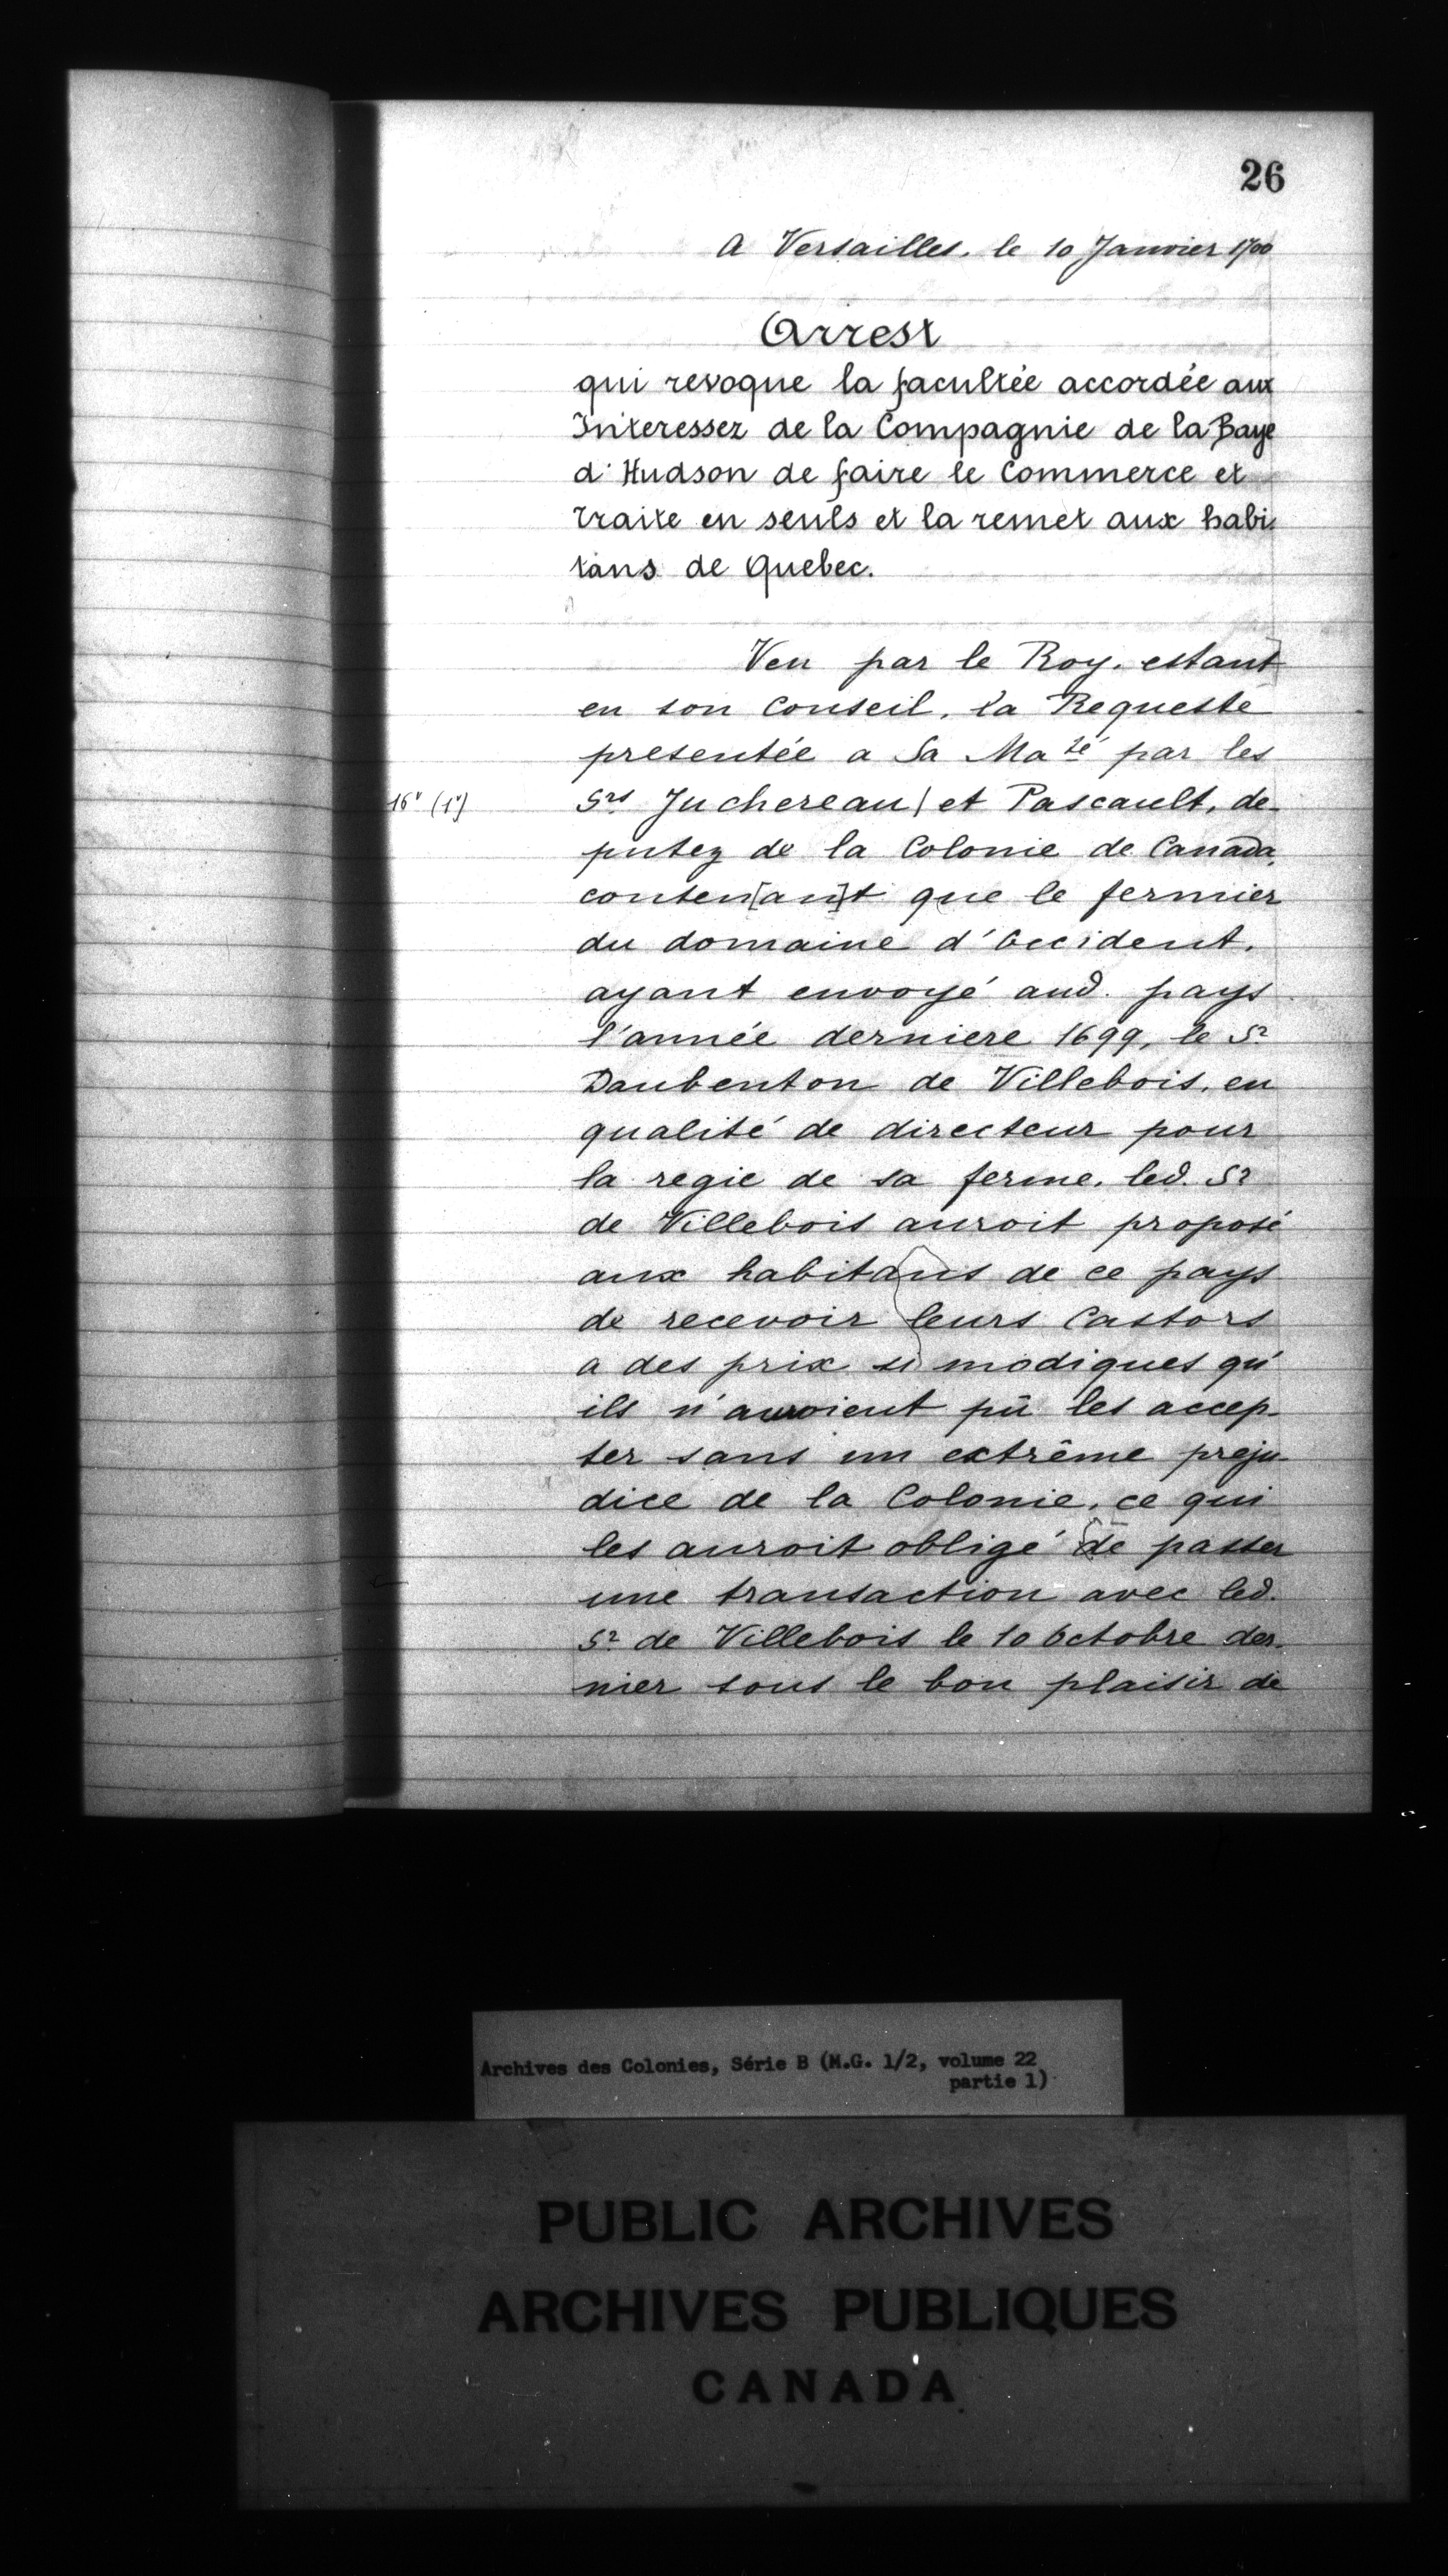 26
A Versailles, le 10 Janvier 1700
Arrest
qui revoque la facultée accordée aux
Interessez de la Compagnie de la Baye
d'Hudson de faire le Commerce et
traite en seuls et la remet aux habi-
tans de Quebec.
Veu par le Roy, estant
en son Conseil, la Requeste
presentée a Sa Ma.té par les
16v (1v)
Srs Juchereau | et Pascault, de-
putez de la Colonie de Canada,
conten[an]t que le fermier
du domaine d'Occident,
ayant envoyé aud. pays
l'année derniere 1699, le Sr
Daubenton de Villebois, en
qualité de directeur pour
la regie de sa ferme, led. Sr
de Villebois auroit proposé
aux habitans de ce pays
de recevoir leurs Castors
a des prix si modiques qu'
ils n'auroient pû les accep-
ter sans un extrême preju-
dice de la Colonie, ce qui
les auroit obligé de passer
une transaction avec led.
Sr de Villebois le 10 Octobre der-
nier sous le bon plaisir de
Archives des Colonies, Série B (M.G. 1/2, volume 22
partie 1)
PUBLIC ARCHIVES
ARCHIVES PUBLIQUES
CANADA